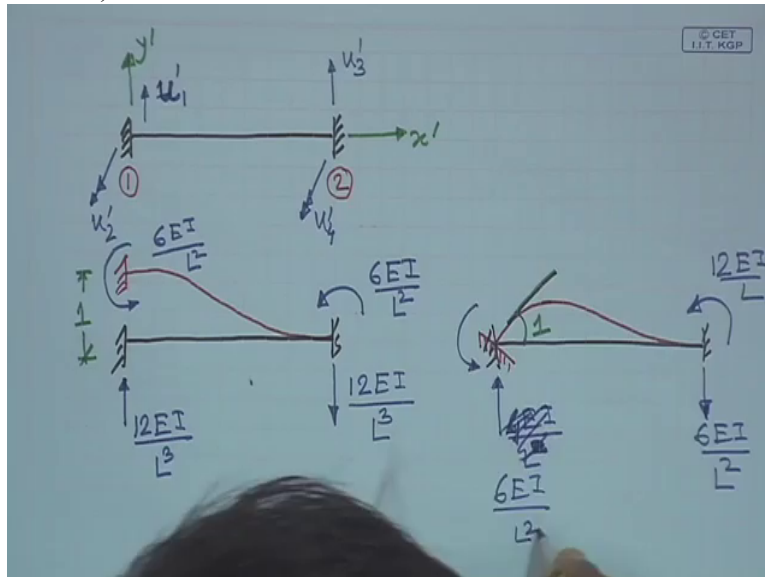 © CET
I.I.T. KGP
y'
u'₁
u'₃
x'
① ②
u'₂
u'₄
6EI/L²
1
6EI/L²
12EI/L³
12EI/L³
1
12EI/L
6EI/L²
6EI/L²